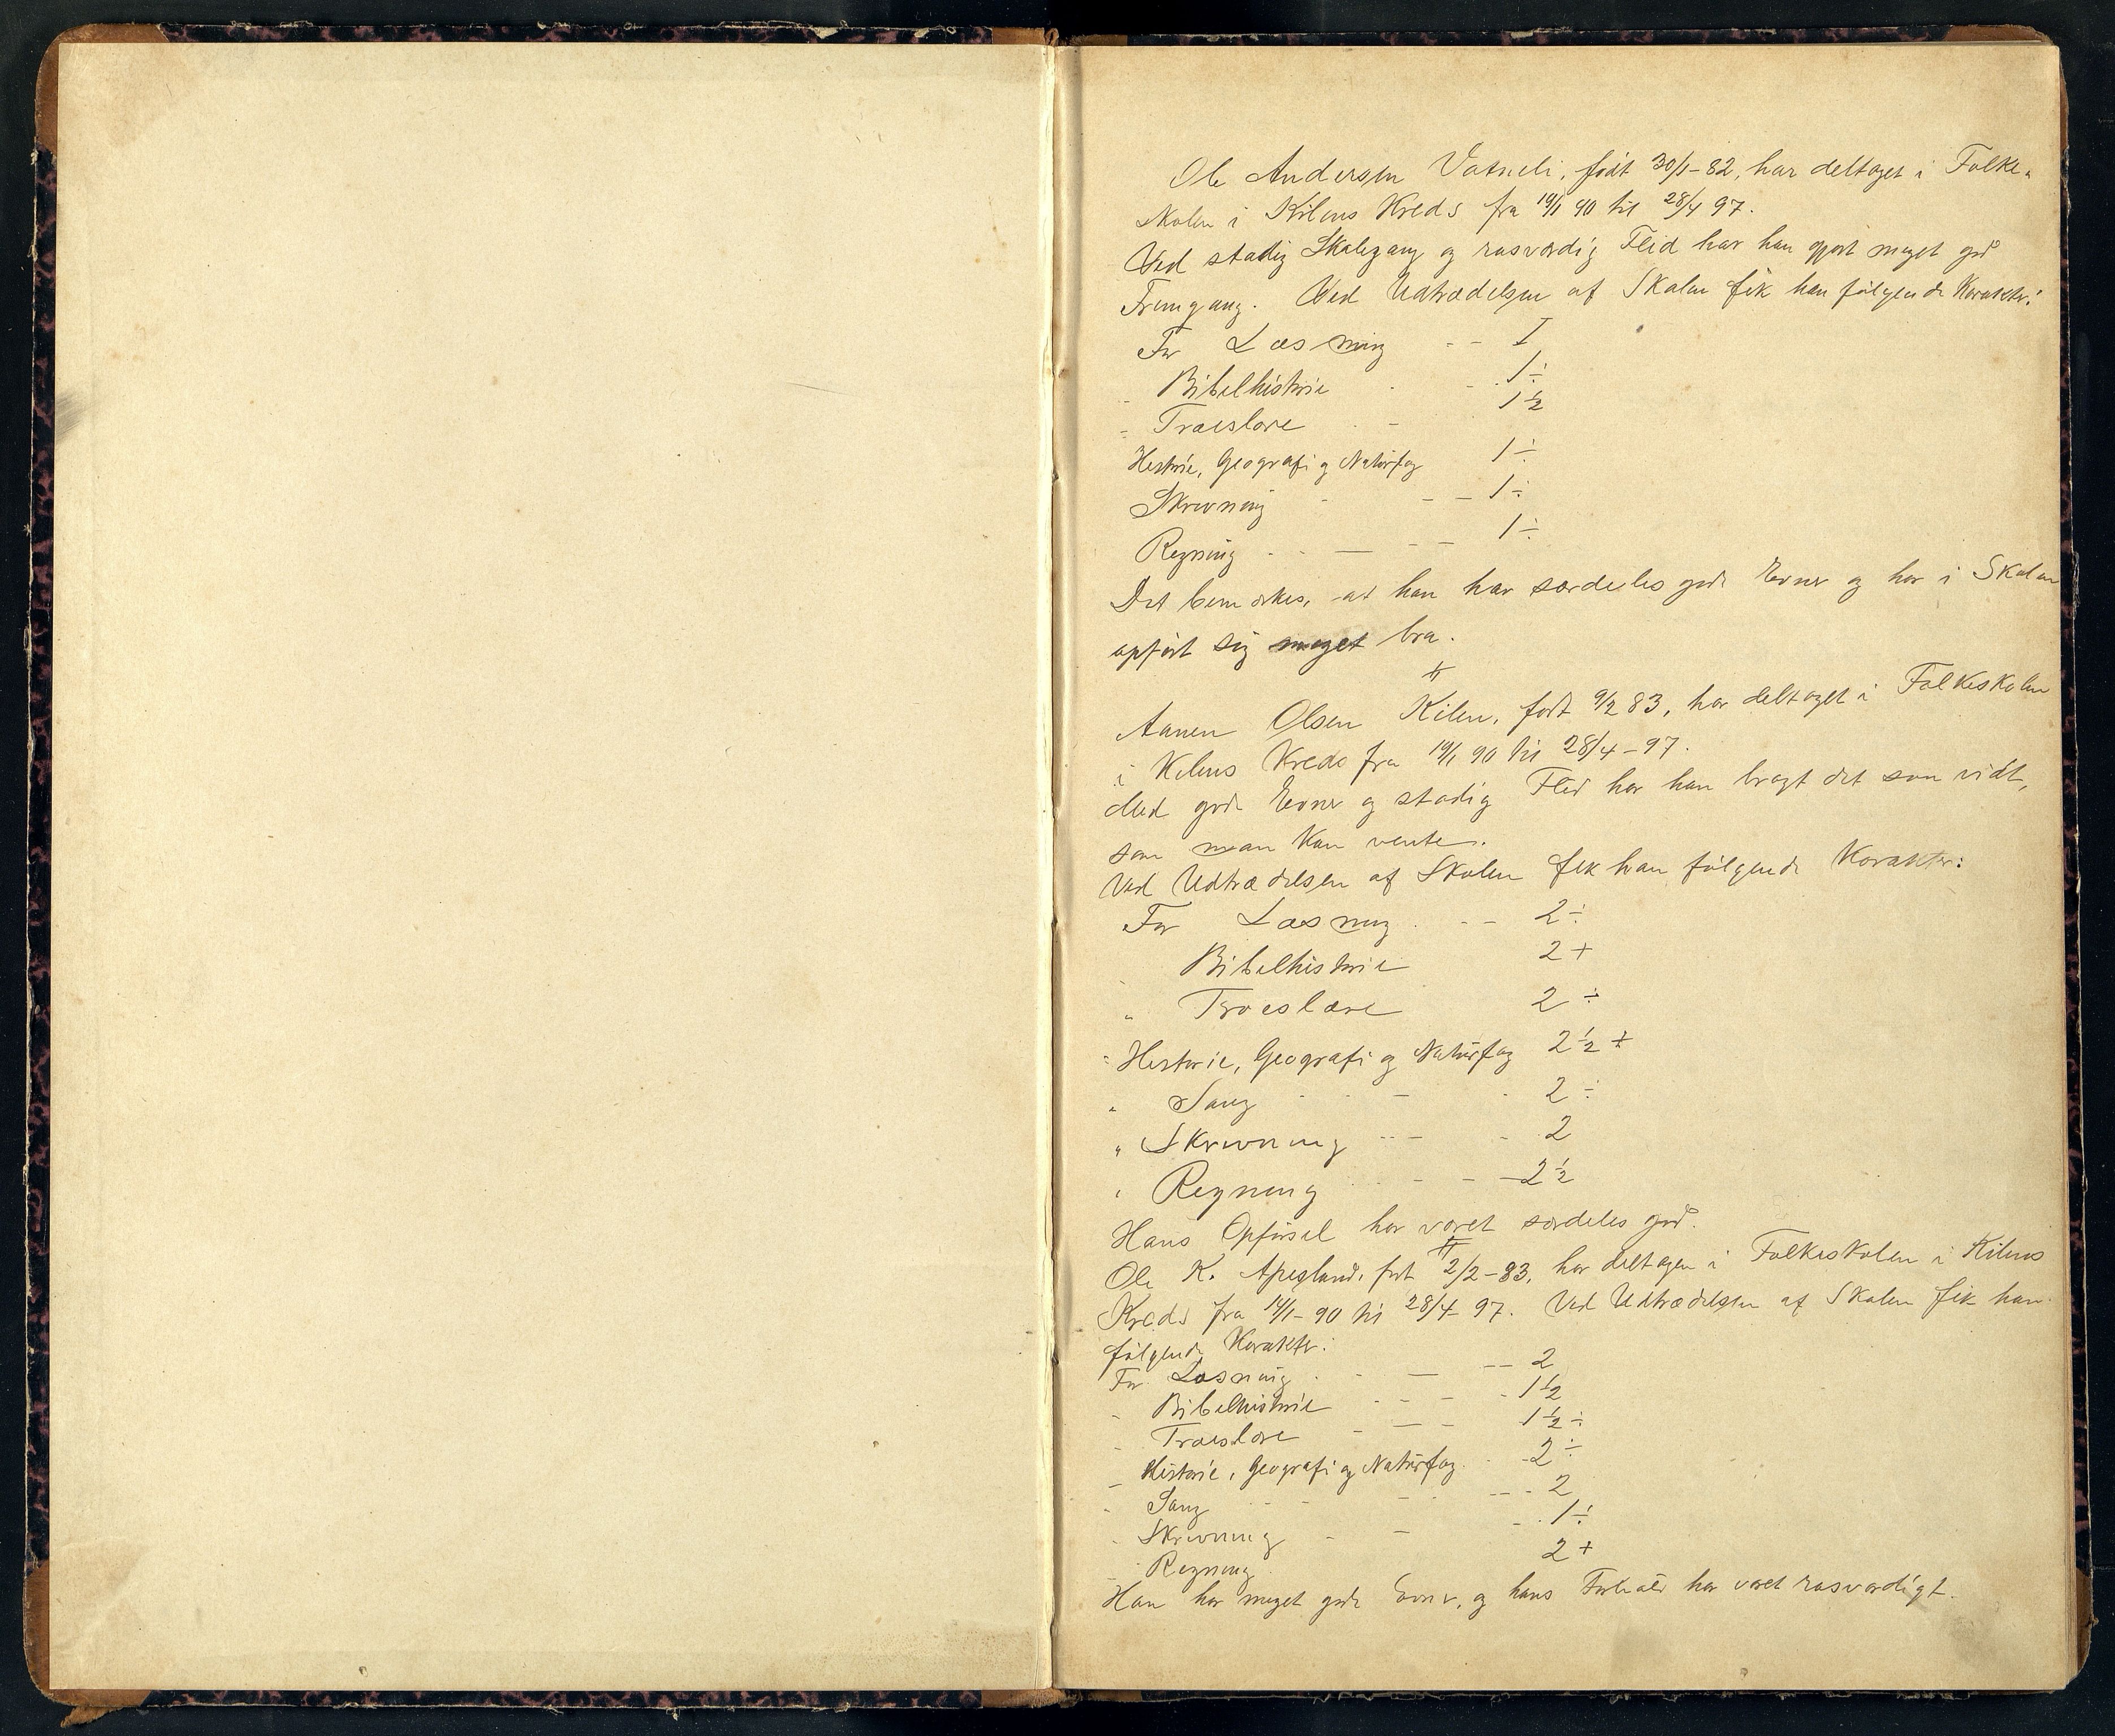 Ole Andersen Vatneli, født 30/1-82, har deltaget i Folke-
skolen i Kilens Kreds fra 19/1 90 til 28/4 97.
Ved stadig Skolegang og rosværdig Flid har han gjort meget god
Fremgang. Ved Udtrædelsen af Skolen fik han følgende Karakter:
For Læsning - - I
- Bibelhistorie - 1÷
- Troeslære - 1½
Historie, Geografi og Naturfag 1÷
Skrivning - - - 1÷
Regning - - — - - 1÷
Det bemærkes, at han har særdeles gode Evner og har i Skolen
opført sig meget bra.
Aanen Olsen Kilen, født 9/2 83, har deltaget i Folkeskolen
i Kilens Kreds fra 19/1 90 til 28/4-97.
Med gode Evner og stadig Flid har han bragt det saa vidt,
som man kan vente.
Ved Udtrædelsen af Skolen fik han følgende Karakter:
For Læsning - - 2÷
" Bibelhistorie 2+
" Troeslære 2÷
" Historie, Geografi og Naturfag 2½+
" Sang - - - 2÷
" Skrivning - - - 2
" Regning - - - 2½
Hans Opførsel har været særdeles god.
Ole K. Apesland, født 2/2-83, har deltagen i Folkeskolen i Kilens
Kreds fra 14/1-90 til 28/4 97. Ved Udtrædelsen af Skolen fik han
følgende Karakter:
For Læsning - - — - - 2
- Bibelhistorie - - - - 1½
- Troeslære - — - 1½÷
- Historie, Geografi og Naturfag - 2÷
- Sang - - - - - 2
- Skrivning - - - 1÷
- Regning 2+
Han har meget gode Evner, og hans Forhold har været rosværdigt.